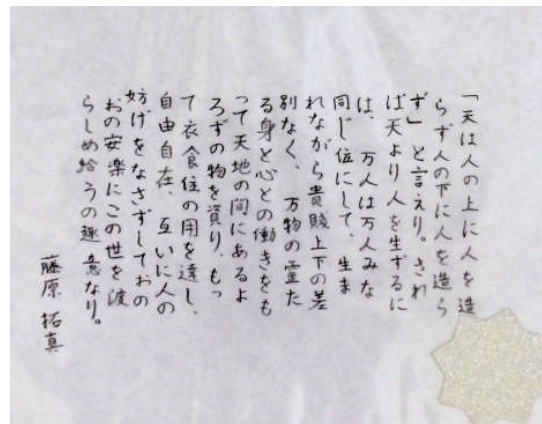 「天は人の上に人を造
らず人の下に人を造ら
ず」と言えり。され
ば天より人を生ずるに
は、万人は万人みな
同じ位にして、生ま
れながら貴賤上下の差
別なく、万物の霊た
る身と心との働きをも
って天地の間にあるよ
ろずの物を資り、もっ
て衣食住の用を達し、
自由自在、互いに人の
妨げをなさずしておの
おの安楽にこの世を渡
らしめ給うの趣意なり。
藤原 拓真